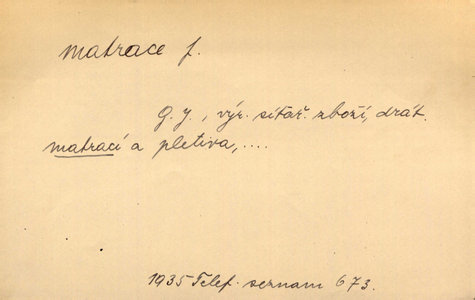 matrace f.
G. J., výr. sítař. zboží, drát.
matrací a pletiva,....
1935 Telef. seznam 673.